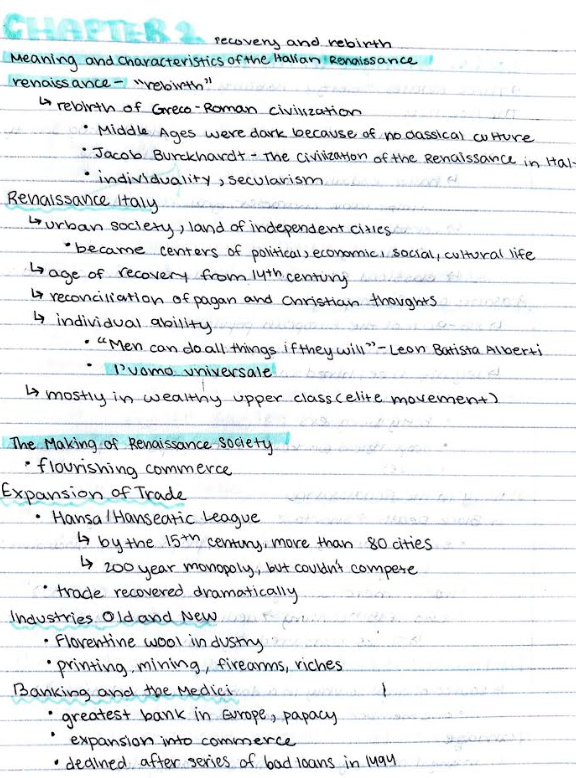 CHAPTER 2 recovery and rebirth
Meaning and Characteristics of the Italian Renaissance
renaissance- "rebirth"
↳ rebirth of Greco-Roman civilization
• Middle Ages were dark because of no classical culture
• Jacob Burckhardt - The Civilization of the Renaissance in Ital-
• individuality, secularism
Renaissance Italy
↳ urban society, land of independent cities
• became centers of political, economic, social, cultural life
↳ age of recovery from 14th century
↳ reconciliation of pagan and Christian thoughts
↳ individual ability
• "Men can do all things if they will" - Leon Batista Alberti
• l'uomo universale
↳ mostly in wealthy upper class (elite movement)
The Making of Renaissance Society
• flourishing commerce
Expansion of Trade
• Hansa/Hanseatic League
↳ by the 15th century, more than 80 cities
↳ 200 year monopoly, but couldn't compete
• trade recovered dramatically
Industries Old and New
• Florentine wool industry
• printing, mining, firearms, riches
Banking and the Medici
• greatest bank in Europe, papacy
• expansion into commerce
• declined after series of bad loans in 1494